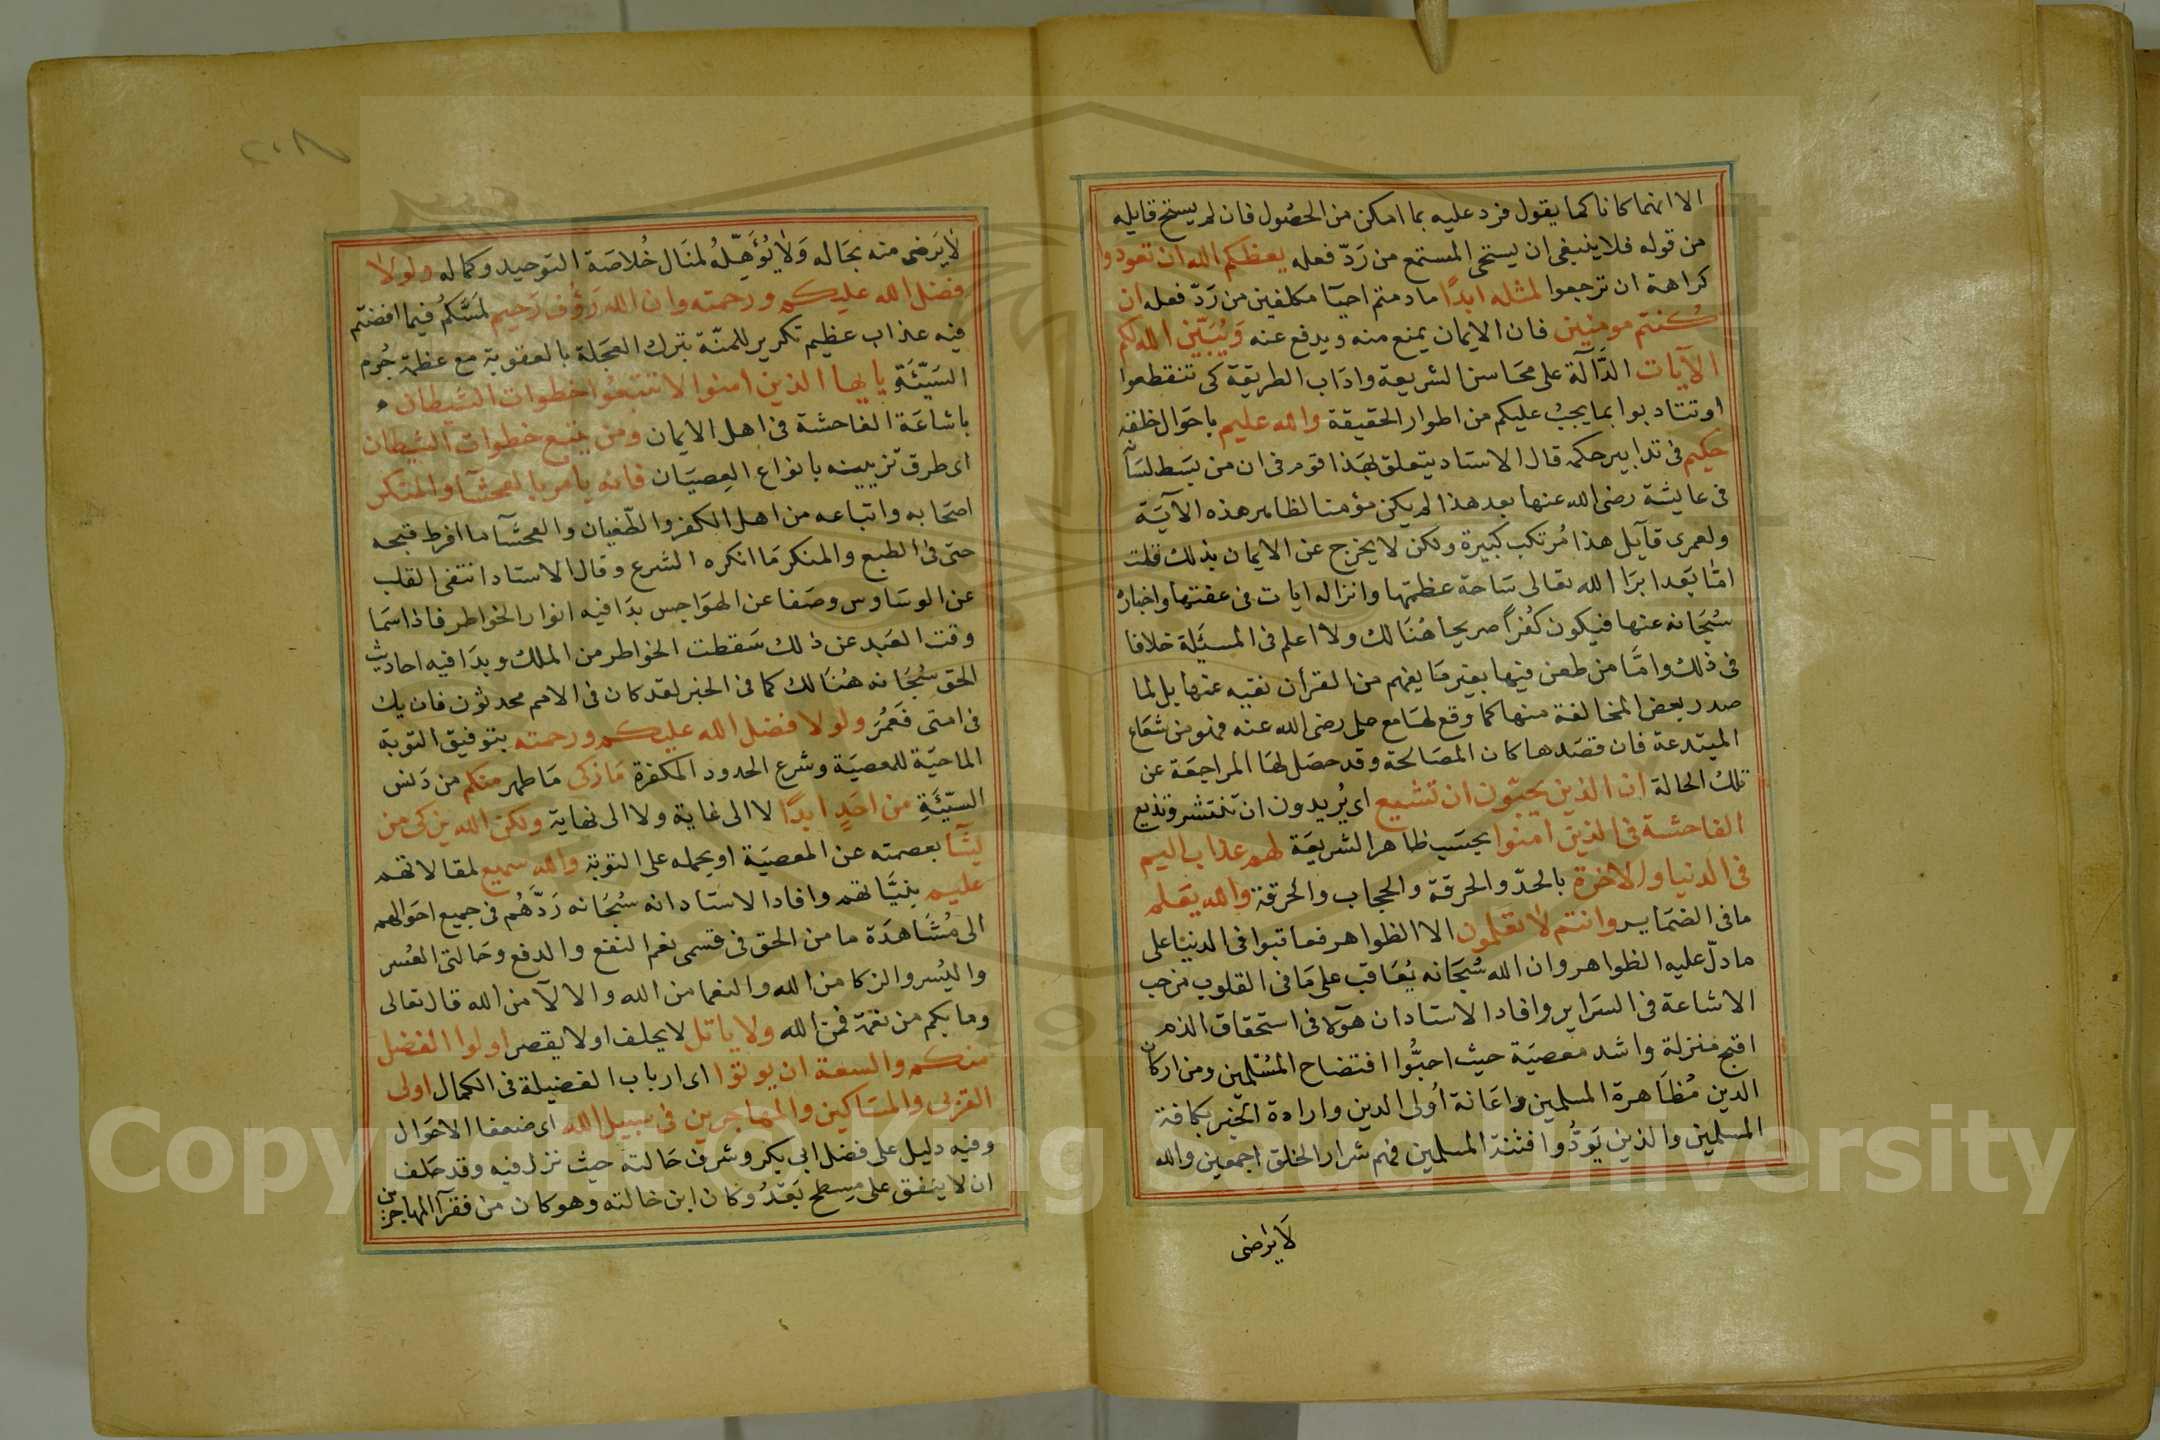 الا انهما كانا كما يقول فرد عليه بما امكن من الحصول فان لم يستح قايله
من قوله فلا ينبغى ان يستحى المستمع من رَدّ فعله يعظكم الله ان تعودوا
كراهة ان ترجعوا لمثله ابدًا ما دمتم احيآ مكلفين من رَدّ فعله ان
كنتم مومنين فان الايمان يمنع منه ويدفع عنه وَيُبَيّن الله لكم
الآيات الدَّآلة على محَاسن الشريعة واداب الطريقة كى تنقطعوا
او تتادبوا بما يجبُ عليكم من اطوار الحقيقة والله عليم باحوال خلقه
حكيم فى تدابير حكمه قال الاستاد يتعلق بهَذا قوم فى ان من بسَط لسَانه
فى عايشة رضى الله عنها بعد هذا لم يكن مؤمنا لظاهر هذه الآيَة
ولعمرى قآيل هذا مُرتكب كبيرة ولكن لا يخرج عن الايمان بذلك قلت
امّا بَعد ابرَا الله تعالى سَاحة عظمتها وانزاله ايات فى عفتها واخباره
سُبحَانه عنها فيكون كفراً صريحا هُنَالك ولا اعلم فى المسيَلة خلافا
فى ذلك وامَّا من طعن فيها بغير مَا يفهم من القرأن نفيه عنها بل لما
صدر بعض المخالفة منها كما وقع لهَا مع على رضى الله عنه فهو من شعَار
المبتدعة فان قصَدها كان المصَالحة وقد حصَل لهَا المراجعَة عن
تلك الحالة ان الذين يحبّون ان تشيع اى يُريدون ان تنتشر وتذيع
الفاحشة فى الذين امنوا بحسَب ظاهر الشريعَة لهم عذاب اليم
فى الدنيا والاخرة بالحدّ والحرقة والحجاب والحرقة والله يعَلم
ما فى الضمَاير وانتم لا تعَلمون الا الظواهر فعاقبوا فى الدنيَا على
ما دلّ عليه الظواهر وان الله سُبحَانه يُعَاقب على مَا فى القلوب من حب
الاشاعة فى السَراير وافاد الاستاد ان هؤلا فى استحقاق الذم
اقبح منزلة واشد معصيَة حيث احبُّوا افتضاح المسُلمين ومن اركان
الدين مُظاهرة المسلمين واعَانة اُولى الدين وارادة الخير بكافة
المسلمين والذين يَودُّوا فتنة المسلمين فهم شرار الخلق اجمعين والله
لَا يرضى
لَا يَرضى منه بحَاله وَلا يُؤَهِّلُه لمنَال خُلاصَة التوحيد وكماله ولولا
فضل الله عليكم ورحمته وان الله رَؤُف رَحيم لمَسَّكم فيما افضتم
فيه عذاب عظيم تكرير للمنّة بترك العجَلة بالعقوبة مع عظمة جُرم
السَيّئَة يا يها الذين امنوا لا تتبعُوا خطوات الشيطان
باشاعَة الفاحشة فى اهل الايمان ومن يتبع خطوات الشيطان
اى طرق تزيينه بانواع العِصيَان فانه يامر بالفحشآ والمنكر
اصحَابه واتباعه من اهل الكفر والطّغيان والفحشآ ما افرط قبحه
حتى فى الطبع والمنكر مَا انكره الشرع وقال الاستاد انتفى القلب
عن الوسَاوس وصَفا عن الهوَاجس بدَا فيه انوار الخواطر فاذا سمَا
وقت العَبد عن ذلك سَقطت الخواطر من الملك وبدَا فيه احاديث
الحق سُبحَانه هُنَالك كما فى الخبر لقد كان فى الامم محدثون فان يك
فى امتى فَعمُرَ ولولا فضل الله عليكم ورحمته بتوفيق التوبة
الماحيَة للمعصيَة وشرع الحدود المكفرة مَا زكى مَا طهر منكم من دَنس
السيّئَةِ من احَدٍ ابدًا لا الى غاية ولا الى نهاية ولكن الله يزكى من
يشآ بعصمته عن المعصيَة او يحمله على التوبة والله سميع لمقالاتهم
عليم بنيَّاتهم وافاد الاستاد انه سُبحَانه رَدَّهُم فى جميع احوالهم
الى مُشَاهدَة ما من الحق فى قسمى نعم النفع والدفع وحَالتى العُسر
واليُسر والزكا من الله والنعما من الله والالآ من الله قال تعالى
وما بكم من نعمة فمن الله ولا ياتل لا يحلف او لا يقصر اولوا الفضل
منكم والسعة ان يوتوا اى ارباب الفضيلة فى الكمال اولى
القربى والمسَاكين والمهاجرين فى سبيل الله اى ضعفا الاحوَال
وفيه دليل على فضل ابى بكر وشرف حَالته حيث نزل فيه وقد حَلف
ان لا ينفق على مسطح بَعْدُ وكان ابن خالته وهو كان من فقرآ المهاجرين
Copyright © King Saud University
1957